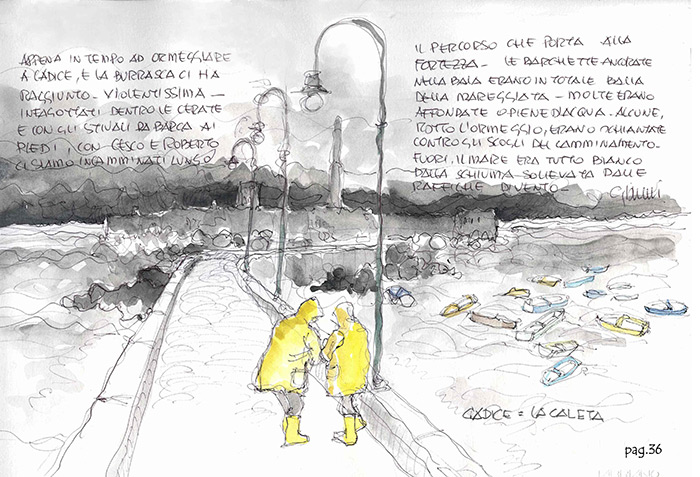 APPENA IN TEMPO AD ORMEGGIARE
A CÁDICE, E LA BURRASCA CI HA
RAGGIUNTO - VIOLENTISSIMA -
INFAGOTTATI DENTRO LE CERATE
E CON GLI STIVALI DA BARCA AI
PIEDI, CON CESCO E ROBERTO
CI SIAMO INCAMMINATI LUNGO
IL PERCORSO CHE PORTA ALLA
FORTEZZA - LE BARCHETTE ANCORATE
NELLA BAIA ERANO IN TOTALE BALIA
DELLA MAREGGIATA - MOLTE ERANO
AFFONDATE O PIENE D'ACQUA - ALCUNE,
ROTTO L'ORMEGGIO, ERANO SCHIANTATE
CONTRO GLI SCOGLI DEL CAMMINAMENTO -
FUORI, IL MARE ERA TUTTO BIANCO
DALLA SCHIUMA SOLLEVATA DALLE
RAFFICHE DI VENTO -
CÁDICE = LA CALETA
pag.36